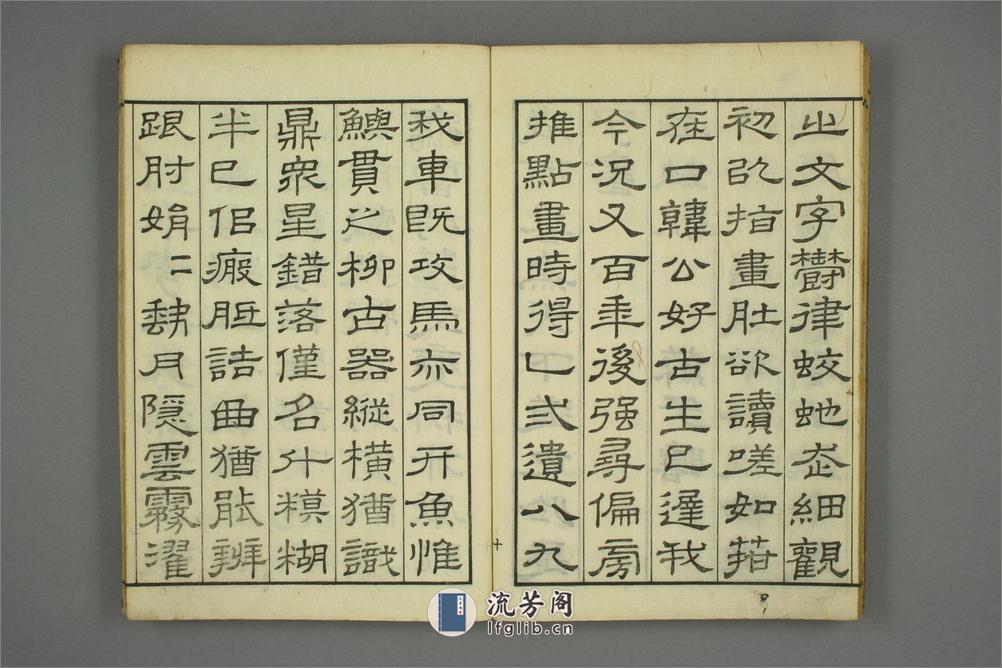 之文字鬱律蛟蛇走細觀
初以指畫肚欲讀嗟如箝
在口韓公好古生已遲我
今況又百年後强尋偏旁
推點畫時得一弍遺八九
十
我車既攻馬亦同其魚惟
鱮貫之柳古器縱橫猶識
鼎衆星錯落僅名斗模糊
半已佀瘢胝詰曲猶能辨
跟肘娟二缺月隱雲霧濯
流芳阁
lfglib.cn